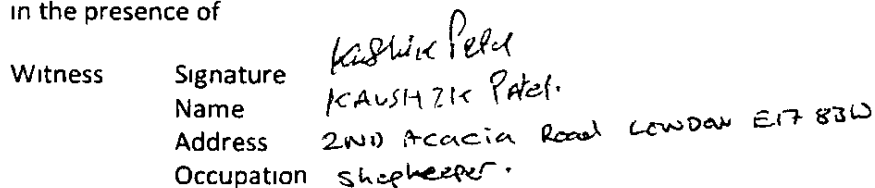 in the presence of
Witness Signature Kaushik Patel
Name KAUSHIK Patel.
Address 2ND Acacia Road LONDON E17 8BW
Occupation Shopkeeper.